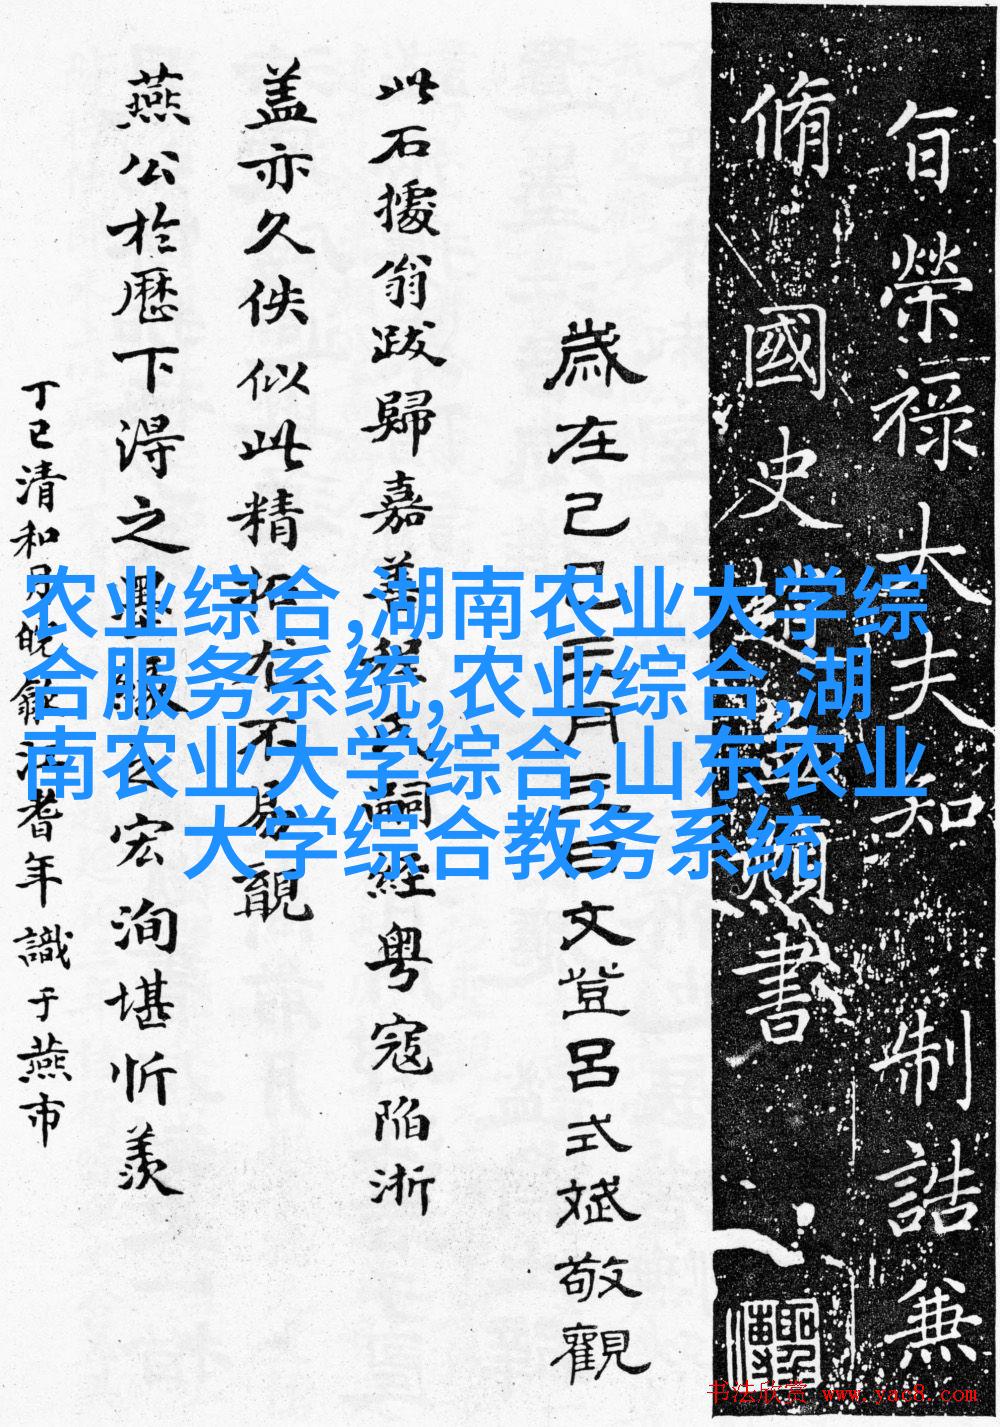 旨榮祿大夫知制誥兼
脩國史趙孟頫書
歲在己巳三月三日文登呂式斌敬觀
此石據翁跋歸嘉善
經粤寇陷浙
盖亦久佚似此精拓尤不易覯
燕公於歷下淂之墨
宏洵堪忻羡
丁巳清和月皖
耆年識于燕市
农业综合,湖南农业大学综
合服务系统,农业综合,湖
南农业大学综合,山东农业
大学综合教务系统
书法欣赏 www.yac8.com